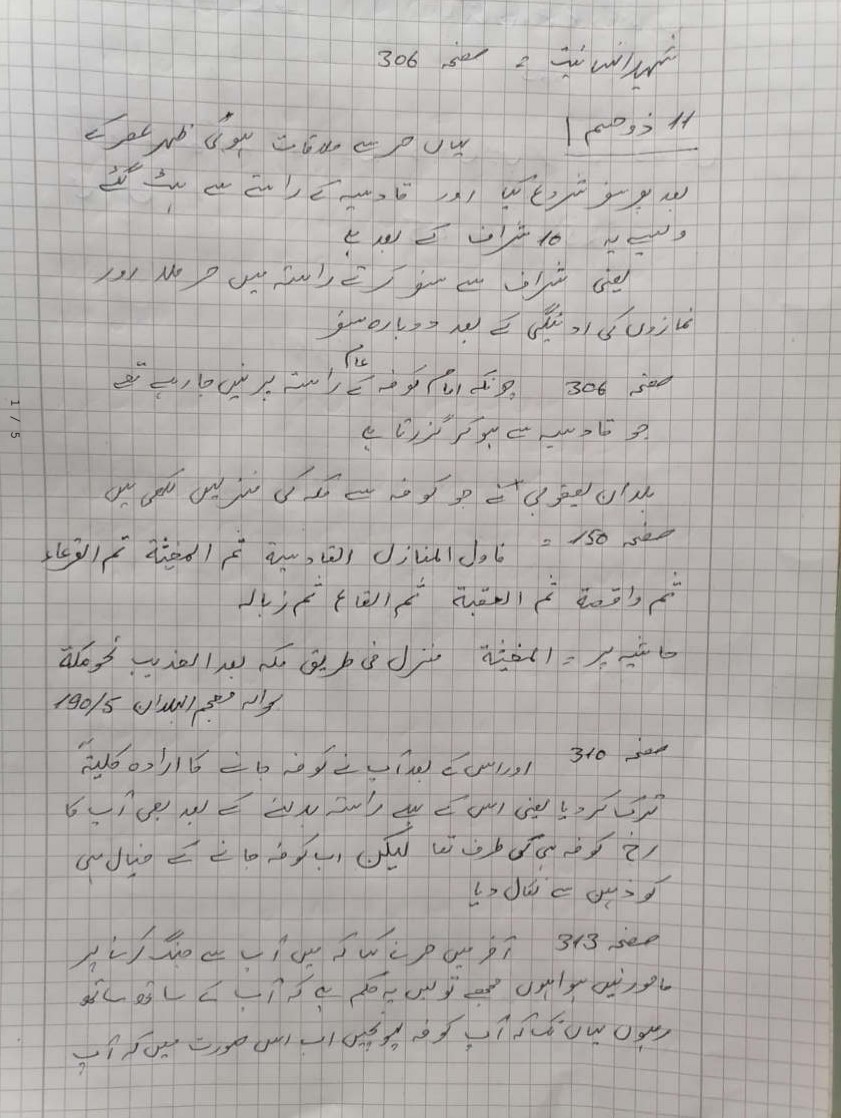 شہید انسانیت = صفحہ 306
11 ذو حسم | یہاں حر سے ملاقات ہوئی ظہر عصر کے
بعد پھر سفر شروع کیا اور قادسیہ کے راستے سے ہٹ گئے
ویسے یہ 10 شراف کے بعد ہے
یعنی شراف سے سفر کرتے راستہ میں حر ملا اور
نمازوں کی ادئیگی کے بعد دوبارہ سفر
صفحہ 306 چونکہ امامؑ کوفہ کے عام راستہ پر نہیں جا رہے تھے
جو قادسیہ سے ہو کر گزرتا ہے
بلدان یعقوبی نے جو کوفہ سے مکہ کی منزلیں لکھی ہیں
صفحہ 150 = فاول المنازل القادسية ثم المغيثة ثم القرعاء
ثم واقصة ثم العقبة ثم القاع ثم زبالہ
حاشیہ پر = المغيثة منزل فى طريق مكه بعد العذيب نحو مكة
حوالہ معجم البلدان 5/190
صفحہ 310 اور اس کے بعد آپ نے کوفہ جانے کا ارادہ کلیتہً
ترک کر دیا یعنی اس کے پہلے راستہ بدلنے کے بعد بھی آپ کا
رخ کوفہ ہی کی طرف تھا لیکن اب کوفہ جانے کے خیال ہی
کو ذہن سے نکال دیا
صفحہ 313 آخر میں حر نے کہا کہ میں آپ سے جنگ کرنے پر
مامور نہیں ہوا ہوں مجھے تو بس یہ حکم ہے کہ آپ کے ساتھ ساتھ
رہوں یہاں تک کہ آپ کوفہ پہونچیں اب اس صورت میں کہ آپ
1 / 5